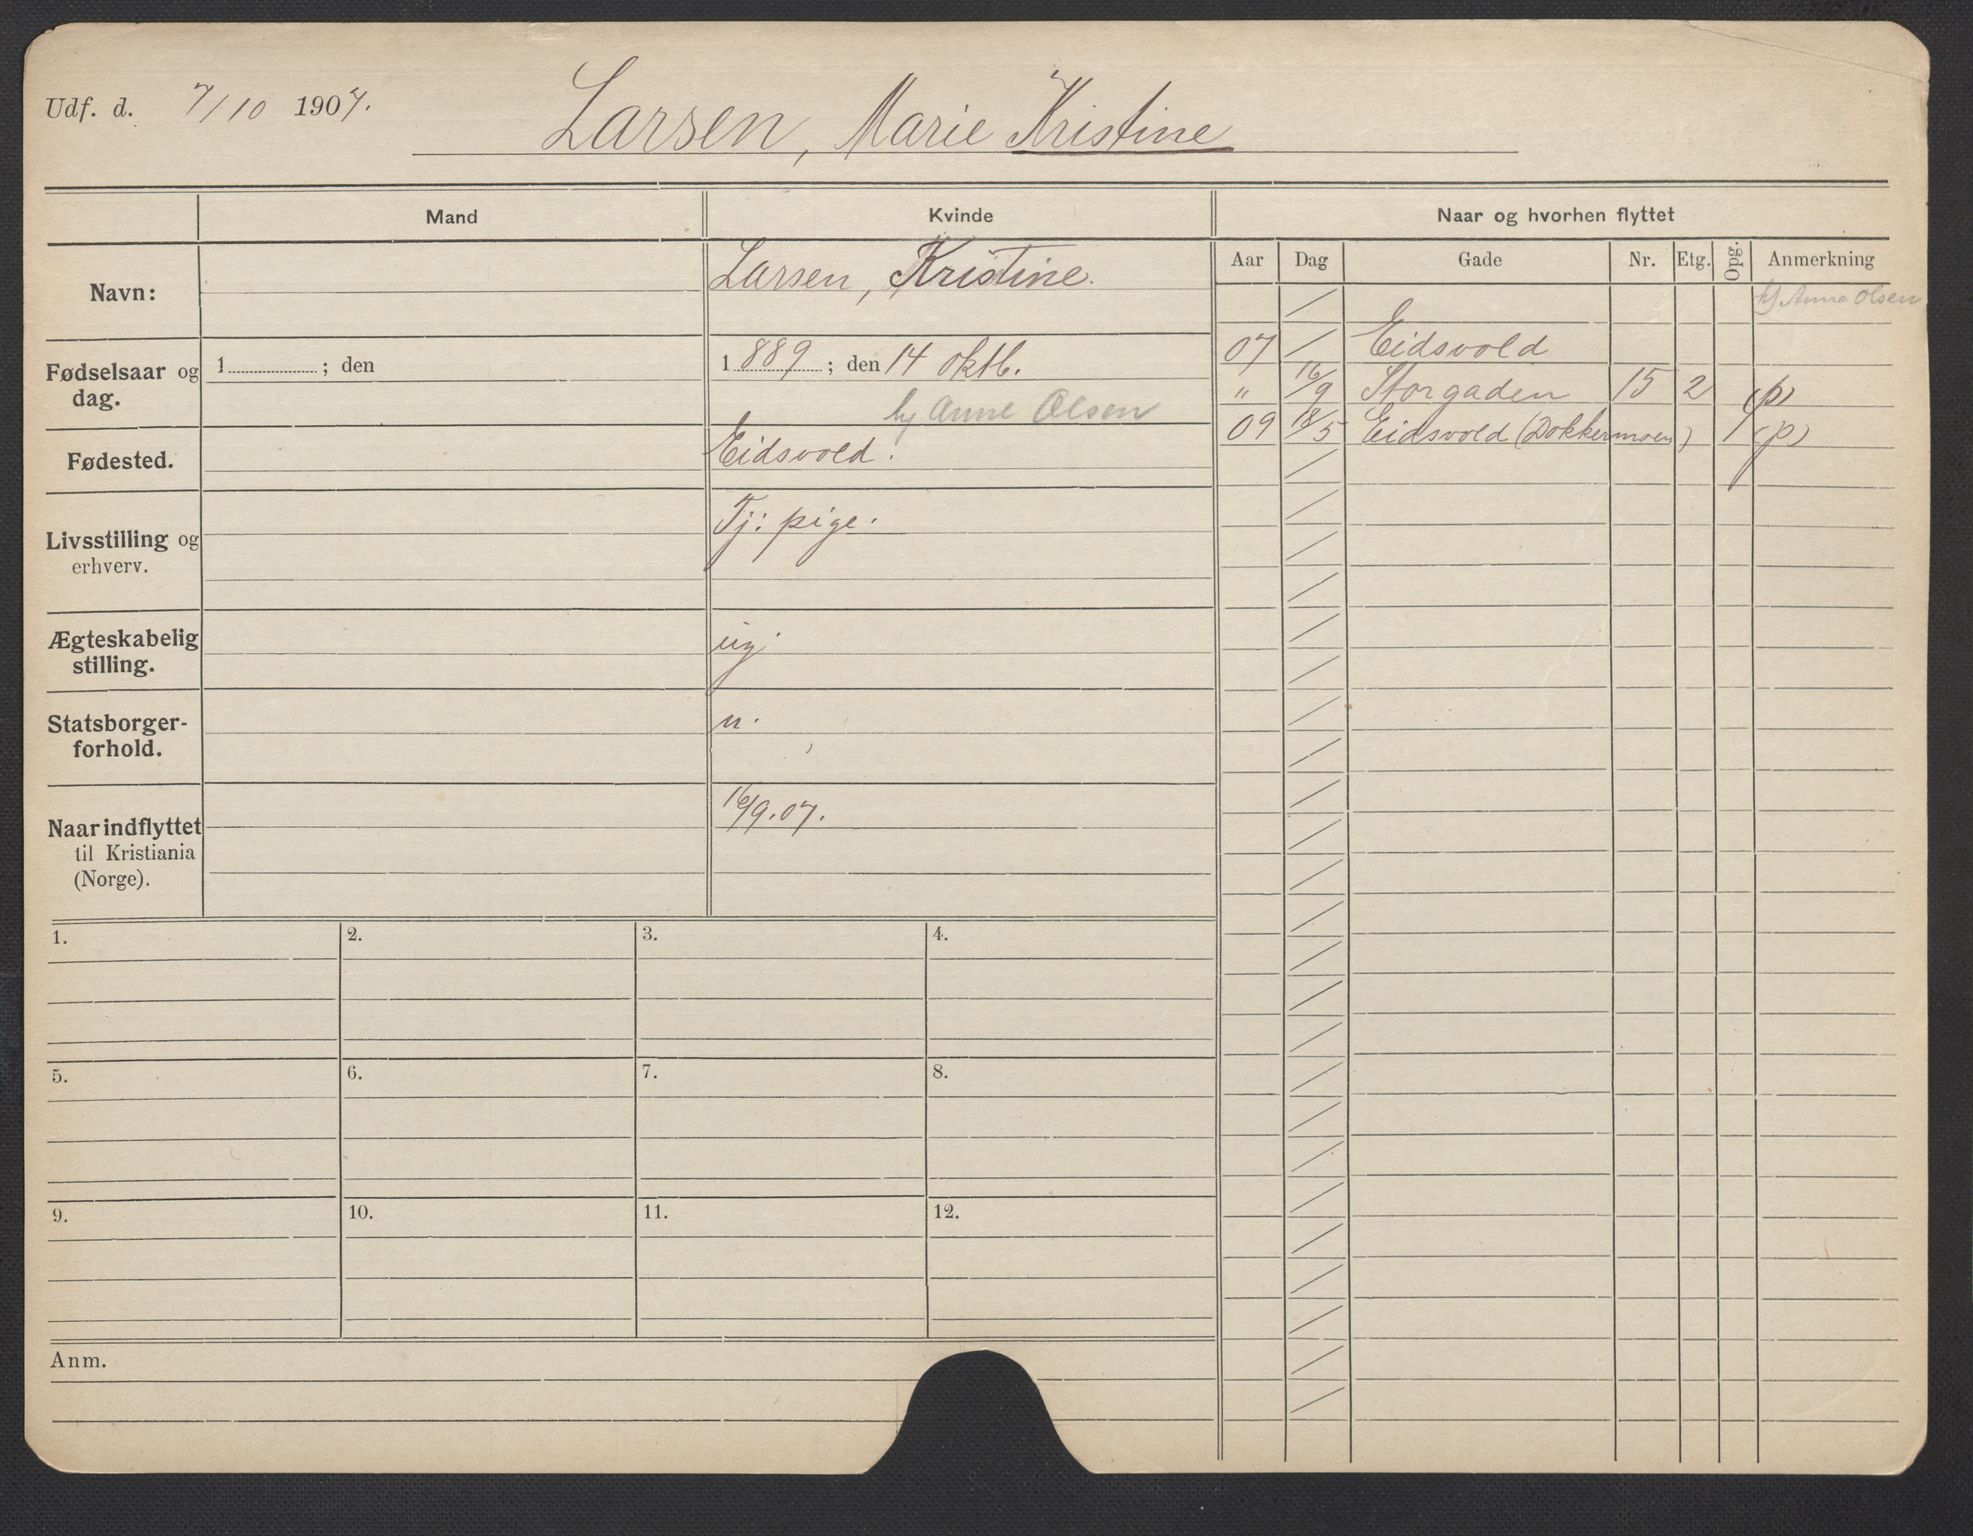 Udf. d. 7/10 1907. Larsen, Marie Kristine
Mand Kvinde Naar og hvorhen flyttet
Aar Dag Gade Nr. Etg. Opg. Anmerkning
Navn: Larsen, Kristine.
hj Anne Olsen
Fødselsaar og dag. 1 ; den 1889 ; den 14 oktb.
hj Anne Olsen
07 / Eidsvold
" 16/9 Storgaden 15 2 (p)
09 18/5 Eidsvold (Dokkermoen) (p)
Fødested. Eidsvold.
Livsstilling og Tj: pige.
erhverv.
Ægteskabelig ug
stilling.
Statsborger- n.
forhold.
Naar indflyttet 16/9.07.
til Kristiania
(Norge).
1. 2. 3. 4.
5. 6. 7. 8.
9. 10. 11. 12.
Anm.